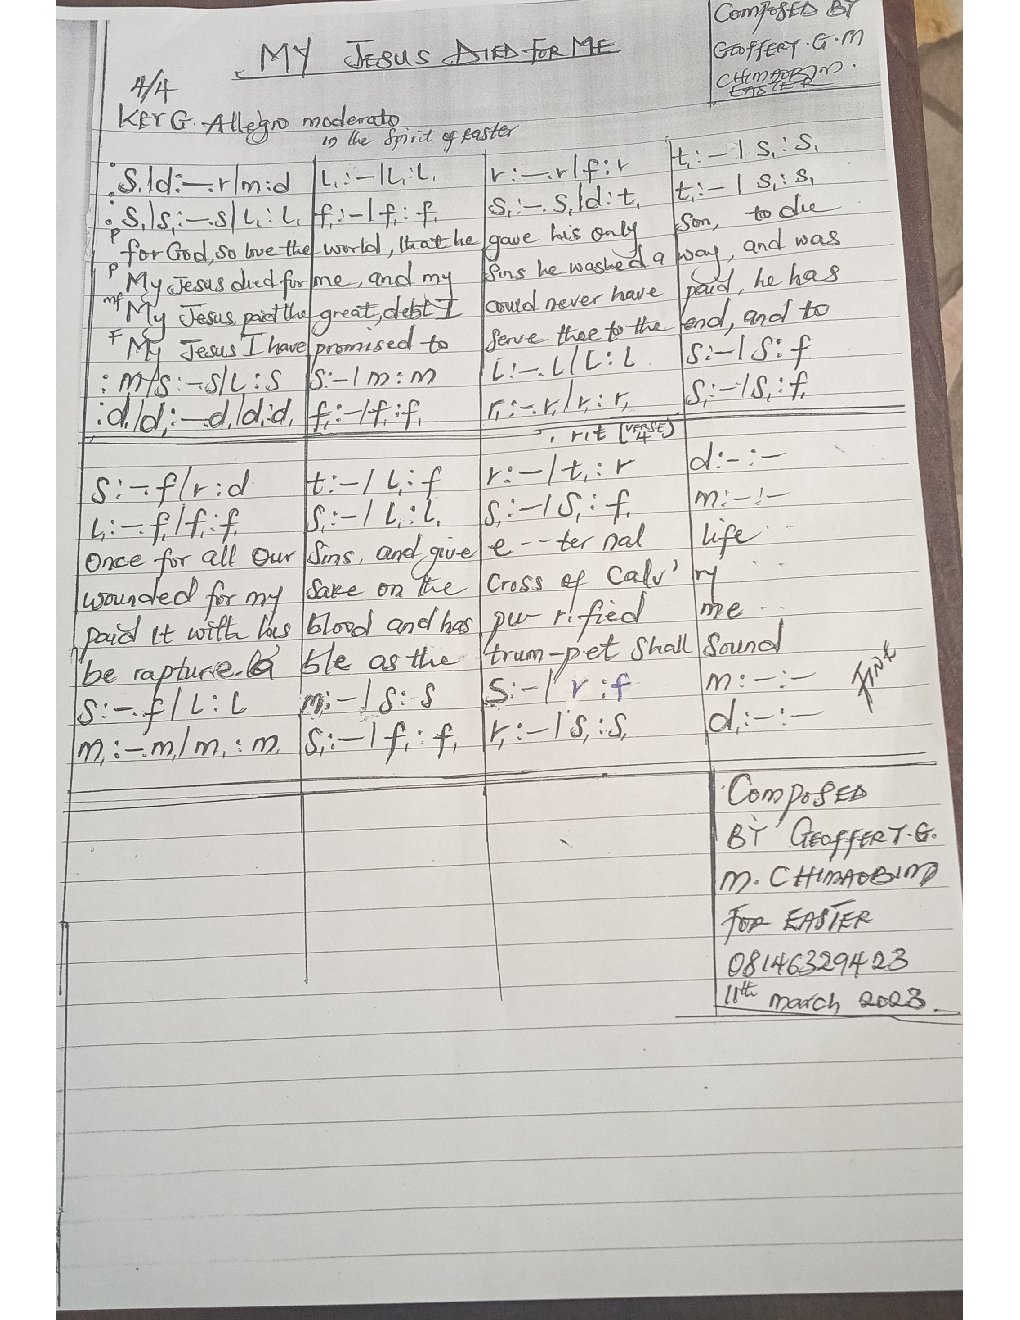 COMPOSED BY
GEOFFERY. G. M
CHIMAOBIM.
EASTER
MY JESUS DIED FOR ME
4/4
KEY G. Allegro moderato
in the Spirit of Easter
:S,|d:-.r|m:d L,:-|L,:L, r:-.r|f:r t,:-|S,:S,
:S,|S,:-.S|L,:L, f,:-|f,:f, S,:-.S,|d:t, t,:-|S,:S,
P for God, so love the world, that he gave his only Son, to die
P My Jesus died for me, and my Sins he washed a way, and was
mf My Jesus paid the great, debt I could never have paid, he has
F My Jesus I have promised to Serve thee to the end, and to
:m/S:-.S/L:S S:-|m:m L:-.L/L:L S:-|S:f
:d,/d,:-.d,/d,:d, f,:-|f,:f, r,:-.r,/r,:r, S,:-|S,:f,
rit (VERSE 4)
S:-.f/r:d t:-|L,:f r:-|t,:r d:-:-
L,:-.f,/f,:f, S,:-|L,:L, S,:-|S,:f, m:-:-
Once for all our Sins, and give e -- ter nal life
wounded for my Sake on the Cross of Calv' ry
paid it with his blood and has pu- rified me
be rapture. ble as the trum-pet Shall Sound
S:-.f/L:L m:-|S:S S:-|r:f m:-:- FINE
m,:-.m,/m,:m, S,:-|f,:f, r,:-|S,:S, d,:-:-
COMPOSED
BY GEOFFERY. G.
M. CHIMAOBIM
FOR EASTER
08146329423
11th March 2023.